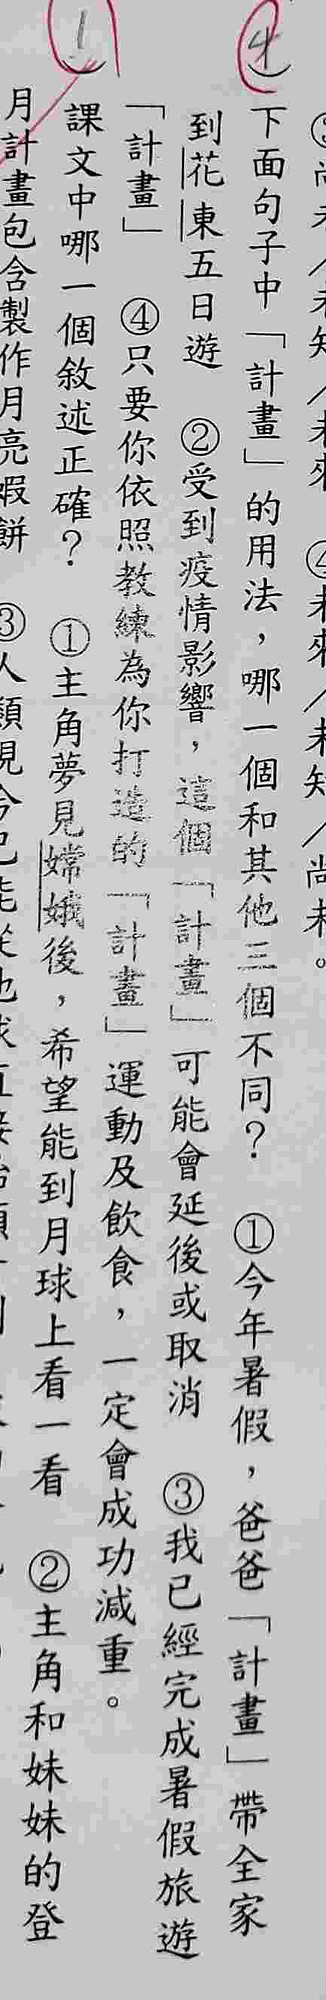 4
下面句子中「計畫」的用法，哪一個和其他三個不同？ ①今年暑假，爸爸「計畫」帶全家
到花東五日遊 ②受到疫情影響，這個「計畫」可能會延後或取消 ③我已經完成暑假旅遊
「計畫」 ④只要你依照教練為你打造的「計畫」運動及飲食，一定會成功減重。
1
課文中哪一個敘述正確？ ①主角夢見嫦娥後，希望能到月球上看一看 ②主角和妹妹的登
月計畫包含製作月亮蝦餅 ③人類現今已能從地球直接